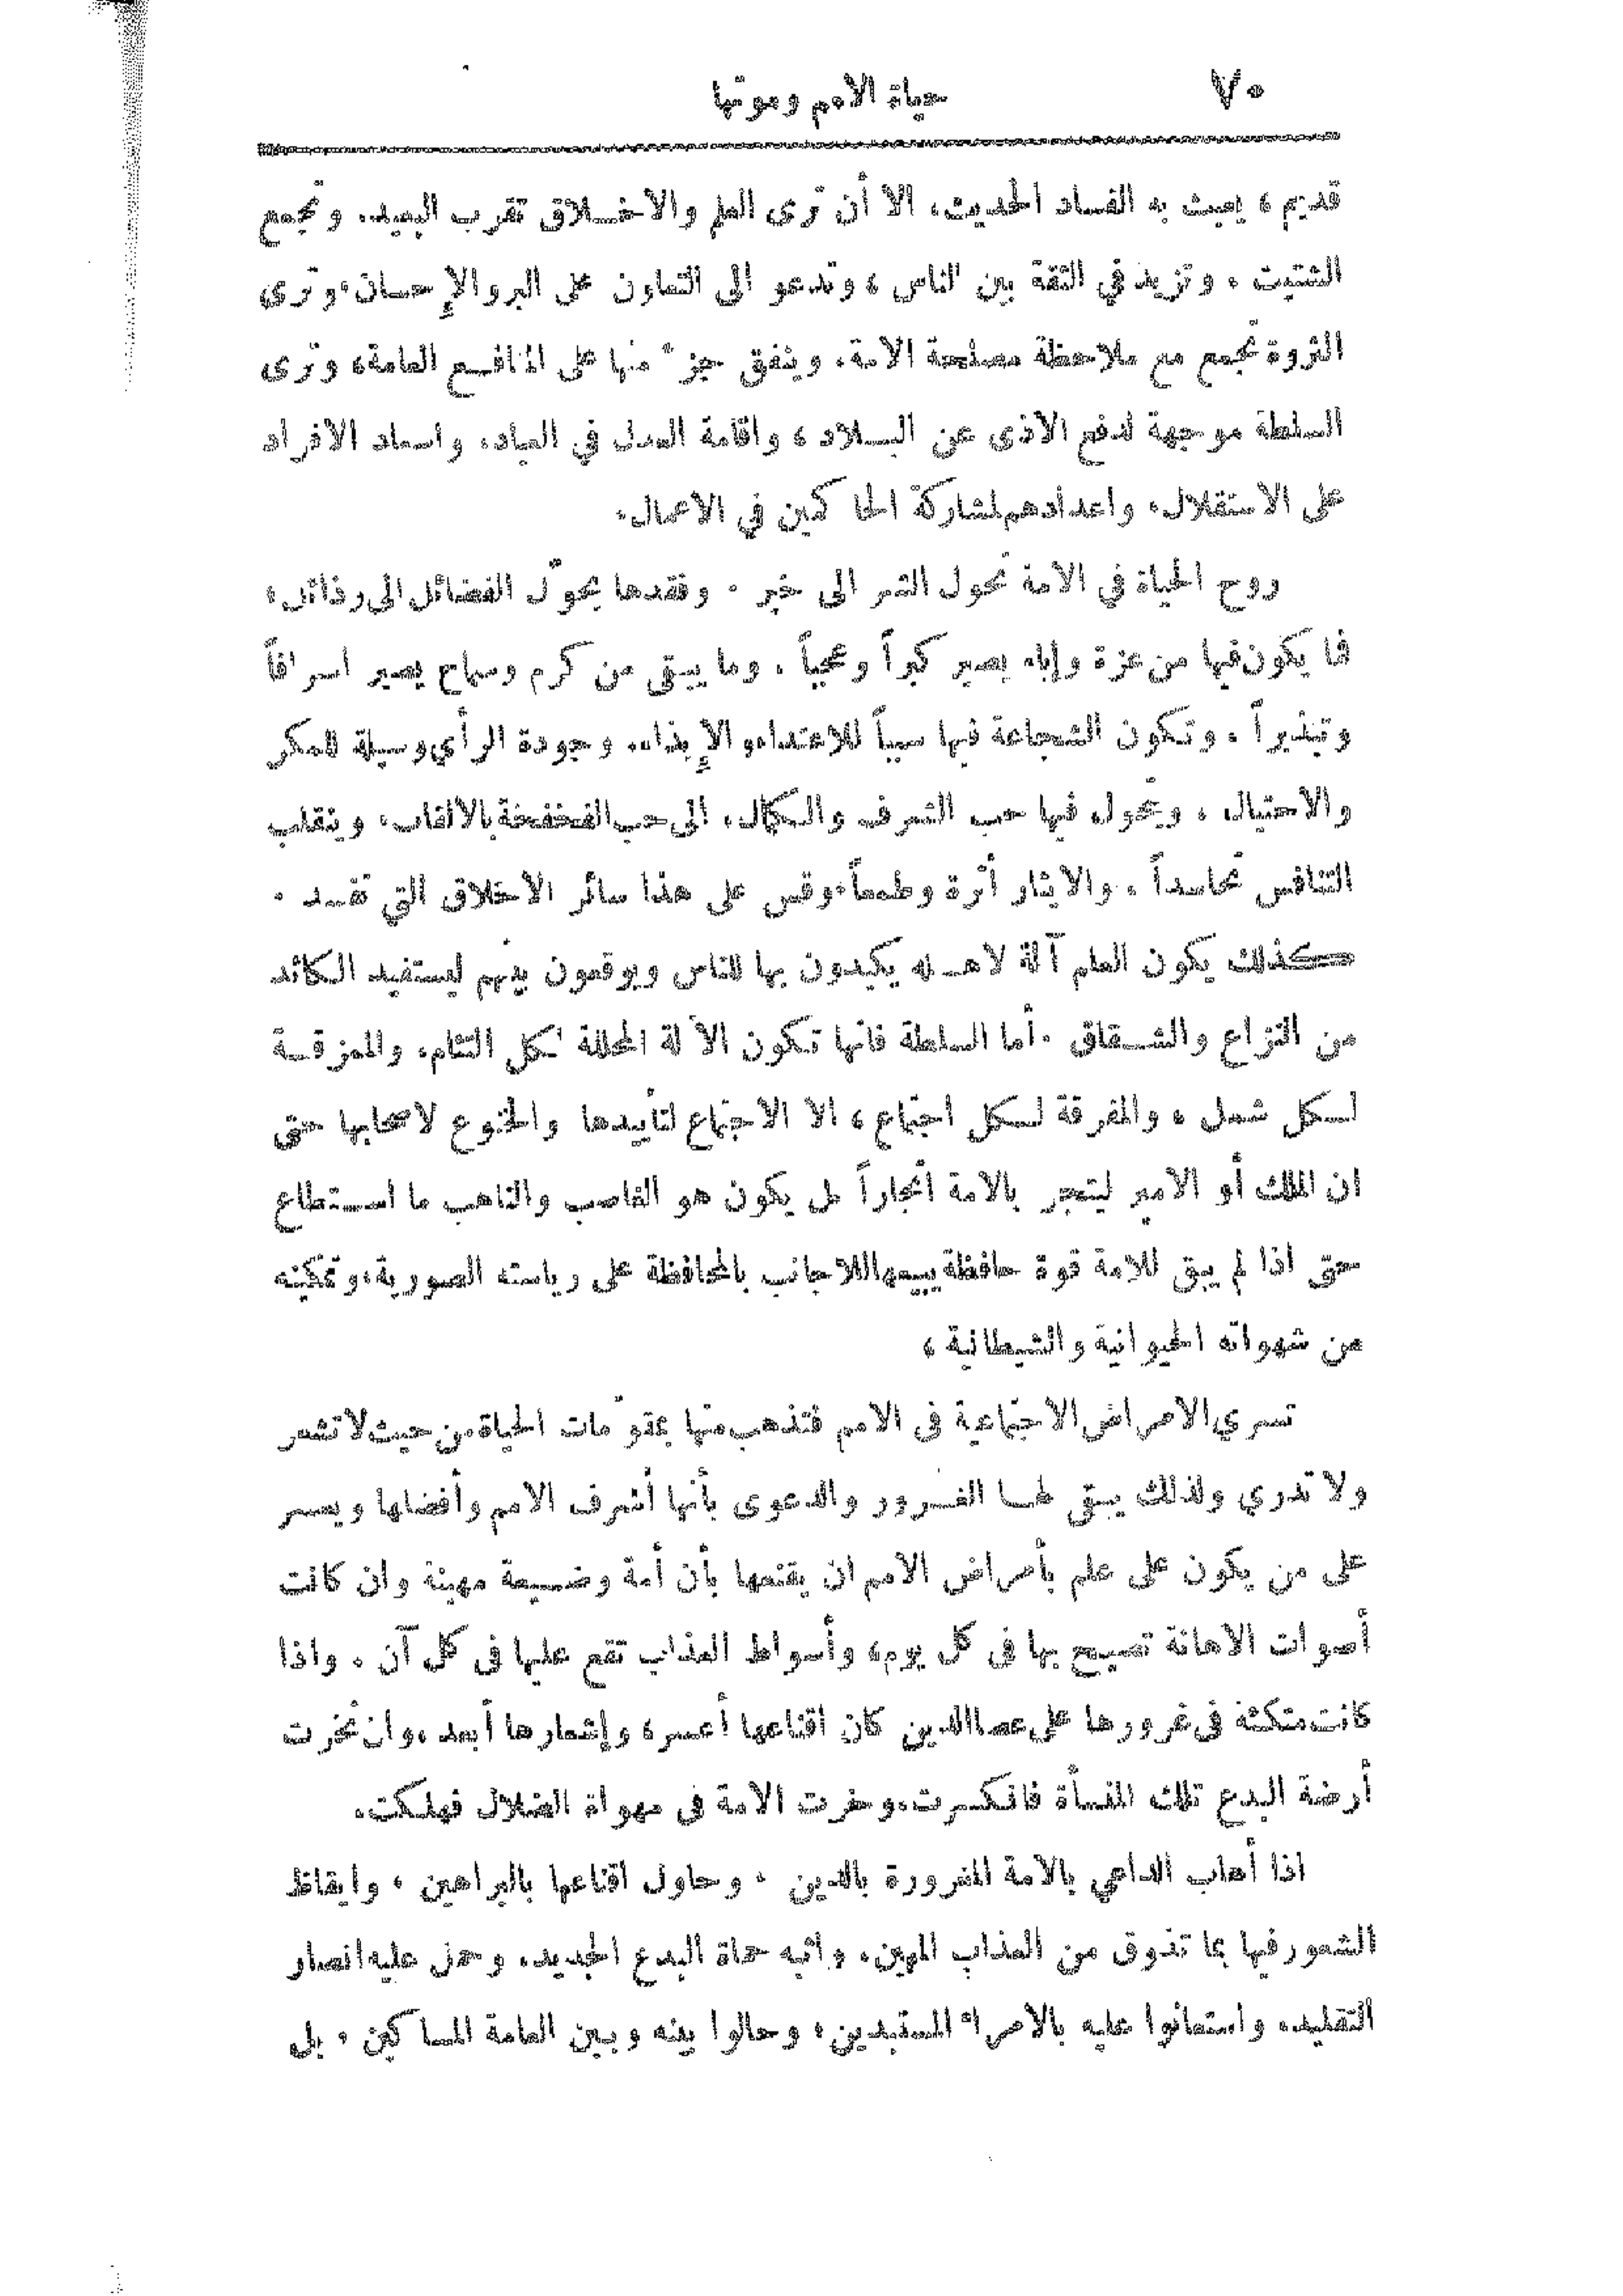 ٧٠
حياة الامم وموتها
قديم ، يعيث به الفساد الحديث، الا أن ترى العلم والاخلاق تقرب البعيد، وتجمع
الشتيت ، وتزيد في الثقة بين الناس ، وتدعو الى التعاون على البر والإحسان، وترى
الثروة تجمع مع ملاحظة مصلحة الامة، وينفق جزء منها على المنافع العامة، وترى
السلطة موجهة لدفع الاذى عن البلاد ، واقامة العدل في العباد، واسعاد الافراد
على الاستقلال، واعدادهم لمشاركة الحاكمين في الاعمال.
روح الحياة في الامة تحول الشر الى خير . وفقدها يحوّل الفضائل الى رذائل،
فما يكون فيها من عزة وإباء يصير كبراً وعجباً ، وما يبقى من كرم وسماح يصير اسرافاً
وتبذيراً ، وتكون الشجاعة فيها سبباً للاعتداء والإيذاء، وجودة الرأي وسيلة للمكر
والاحتيال ، ويتحول فيها حب الشرف والكمال، الى حب الفخفخة بالالقاب، وينقلب
التنافس تحاسداً ، والايثار أثرة وطمعاً، وقس على هذا سائر الاخلاق التي تفسد .
كذلك يكون العلم آلة لاهله يكيدون بها للناس ويوقعون بينهم ليستفيد الكائد
من النزاع والشقاق . أما السلطة فانها تكون الآلة المحللة لكل التئام، والممزقة
لكل شمل ، والمفرقة لكل اجتماع ، الا الاجتماع لتأييدها والخنوع لاصحابها حتى
ان الملك أو الامير ليتجر بالامة اتجاراً بل يكون هو الغاصب والناهب ما استطاع
حتى اذا لم يبق للامة قوة حافظة يبيعها للاجانب بالمحافظة على رياسته الصورية، وتمكينه
من شهواته الحيوانية والشيطانية ،
تسري الامراض الاجتماعية فى الامم فتذهب منها بمقوّمات الحياة من حيث لا تشعر
ولا تدري ولذلك يبقى لها الغرور والدعوى بأنها أشرف الامم وأفضلها ويعسر
على من يكون على علم بأمراض الامم ان يقنعها بأن أمة وضيعة مهينة وان كانت
أصوات الاهانة تصيح بها فى كل يوم، وأسواط العذاب تقع عليها فى كل آن . واذا
كانت متكئة فى غرورها على عصا الدين كان اقناعها أعسر، وإشعارها أبعد ، وان نخرت
أرضة البدع تلك المنسأة فانكسرت، وخرت الامة فى مهواة الضلال فهلكت.
اذا أهاب الداعي بالامة المغرورة بالدين ، وحاول اقناعها بالبراهين ، وايقاظ
الشعور فيها بما تذوق من العذاب المهين، واثبه حماة البدع الجديد، وحمل عليه انصار
التقليد، واستعانوا عليه بالامراء المستبدين، وحالوا بينه وبين العامة المساكين ، بل